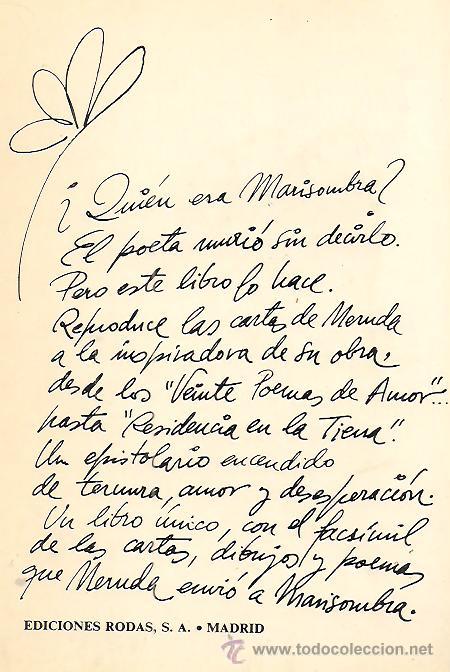 ¿Quién era Marisombra?
El poeta murió sin decirlo.
Pero este libro lo hace.
Reproduce las cartas de Neruda
a la inspiradora de su obra,
desde los "Veinte Poemas de Amor"...
hasta "Residencia en la Tierra".
Un epistolario encendido
de ternura, amor y desesperación.
Un libro único, con el facsímil
de las cartas, dibujos y poemas
que Neruda envió a Marisombra.
EDICIONES RODAS, S. A. • MADRID
www.todocoleccion.net